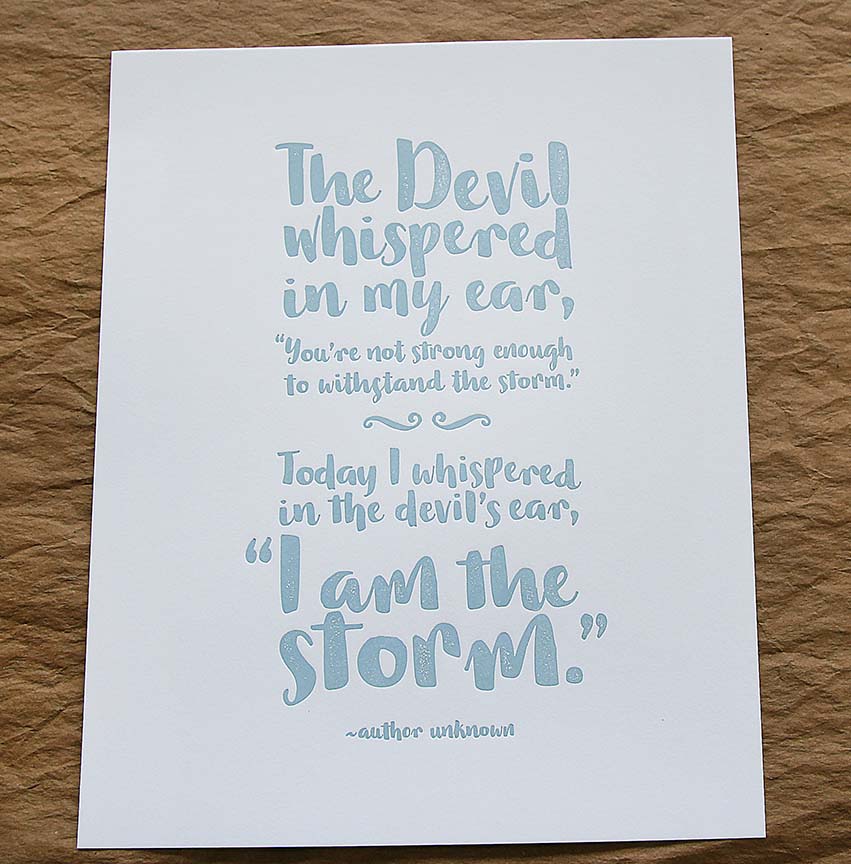 The Devil
whispered
in my ear,
“You're not strong enough
to withstand the storm.”
Today I whispered
in the devil's ear,
“I am the
storm.”
~author unknown